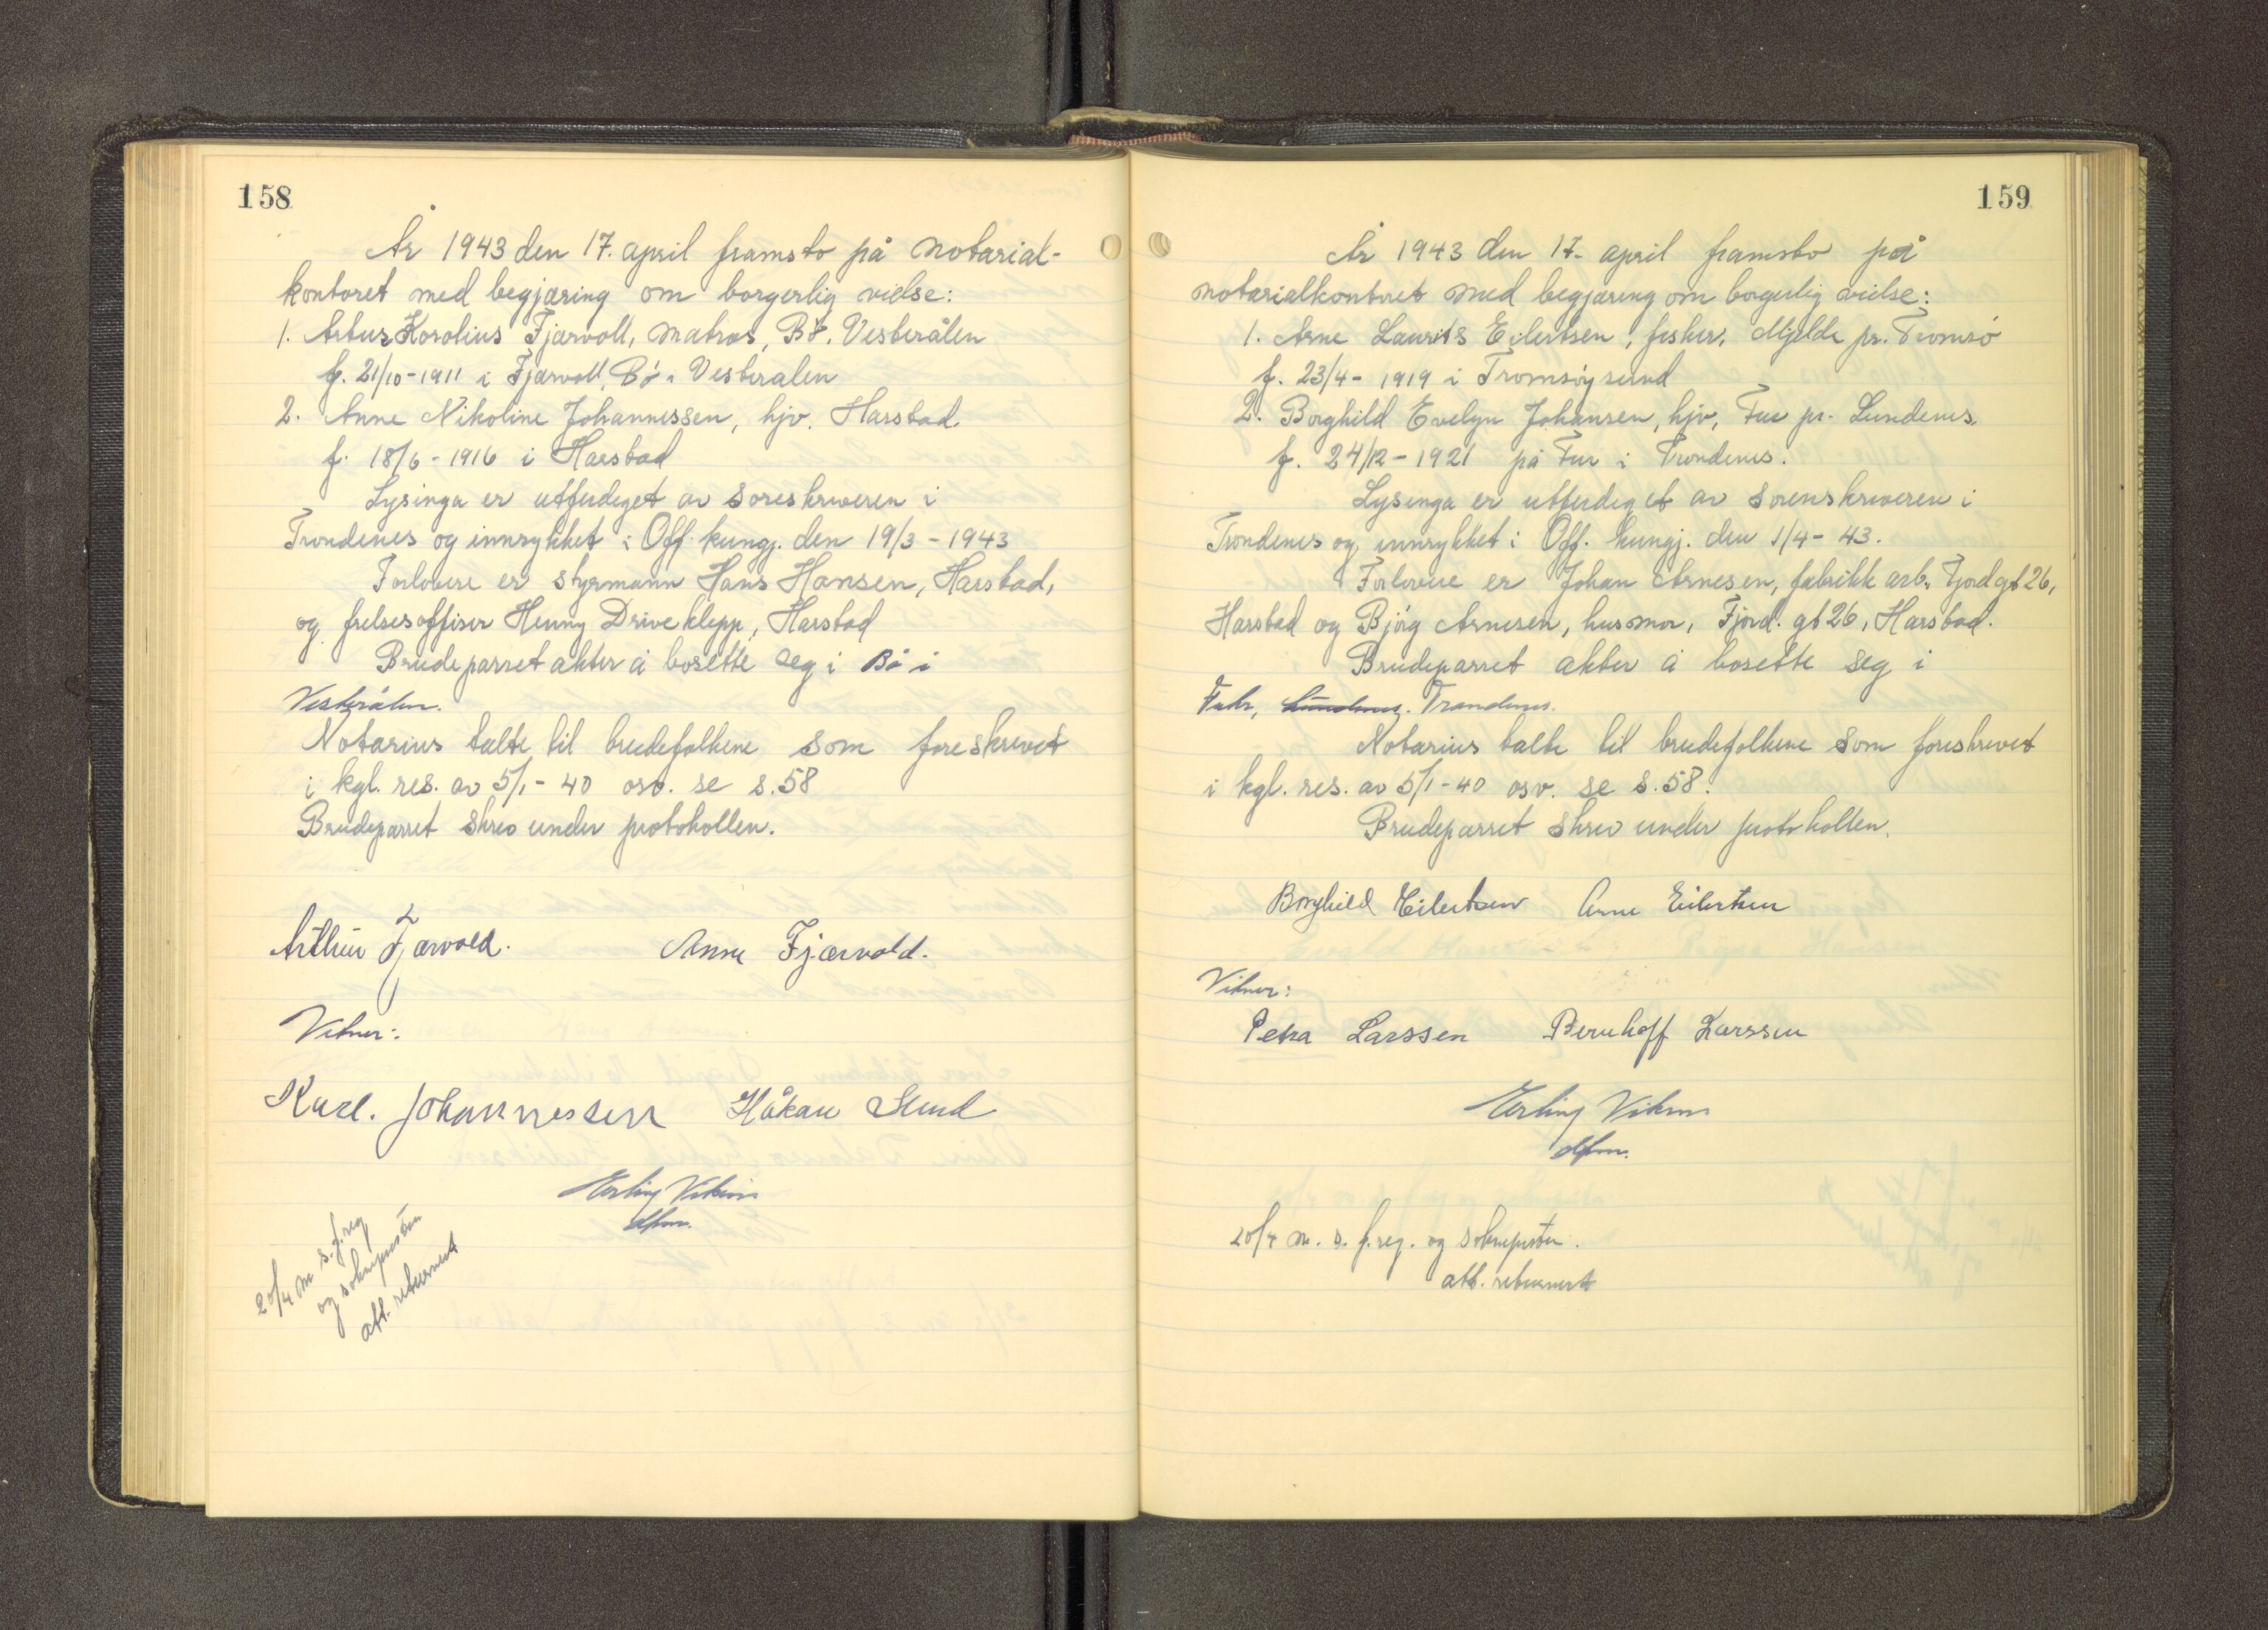 158
År 1943 den 17. april framsto på notarial-
kontoret med begjæring om borgerlig vielse:
1. Artur Korolius Fjærvoll, matros, Bø. Vesterålen
f. 21/10-1911 i Fjærvoll, Bø i Vesterålen
2. Anne Nikoline Johannessen, hjv. Harstad.
f. 18/6-1916 i Harstad
Lysinga er utferdiget av soreskriveren i
Trondenes og innrykket i Off. kungj. den 19/3-1943
Forlovere er styrmann Hans Hansen, Harstad,
og frelsesoffiser Henny Driveklepp, Harstad
Brudeparret akter å bosette seg i Bø i
Vesterålen.
Notarius talte til brudefolkene som foreskrevet
i kgl. res. av 5/1-40 osv. se s.58
Brudeparret skrev under protokollen.
Arthur Fjærvold. Anne Fjærvold.
Vitner:
Karl. Johannessen Håkan Lund
Erling Vikens
dfm.
20/4 m s. f. reg
og soknepresten
att. returnert
159
År 1943 den 17. april framsto på
notarialkontoret med begjæring om borgerlig vielse:
1. Arne Laurits Eilertsen, fisker, Mjelde pr. Tromsø
f. 23/4-1919 i Tromsøysund
2. Borghild Evelyn Johansen, hjv, Fur pr. Lundenes.
f. 24/12-1921 på Fur i Trondenes.
Lysinga er utferdiget av sorenskriveren i
Trondenes og innrykket i Off. kungj. den 1/4-43.
Forlovere er Johan Arnesen, fabrikkarb. Fjordgt 26,
Harstad og Bjørg Arnesen, husmor, Fjord. gt 26, Harstad.
Brudeparret akter å bosette seg i
Fuhr, Lundenes. Trondenes.
Notarius talte til brudefolkene som foreskrevet
i kgl. res. av 5/1-40 osv. se s.58.
Brudeparret skrev under protokollen.
Borghild Eilertsen Arne Eilertsen
Vitner:
Petra Larssen Bernhoff Larssen
Erling Vikens
dfm.
20/4 m. s. f. reg. og sokneprsten.
att. returnert